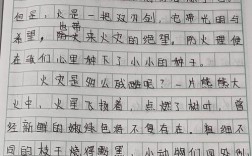 但是，火是一把双刃剑，它带光明与
希望，也带来火灾的绝望。防火理便
在我们心里种下了小小的种子。
火灾是多么残酷呢？一片熊熊大
火中，火星飞扬着，点燃了树叶，曾
经新鲜的嫩绿色将不复存在。粗细不
同的枝干烧得黝黑，小动物们四处